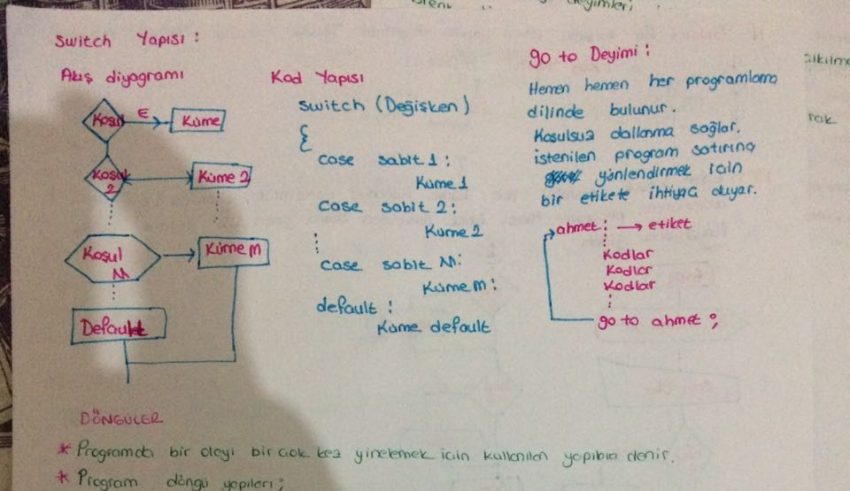 Switch Yapısı :
Akış diyagramı
Koşul
E
Küme
Koşul
2
Küme 2
Koşul
M
Küme m
Default
Kod Yapısı
Switch (Değişken)
{
case sabit 1 :
Küme 1
case sabit 2 :
Küme 2
case sabit M :
Küme m :
default :
Küme default
go to Deyimi :
Hemen hemen her programlama
dilinde bulunur.
Koşulsuz dallanma sağlar.
istenilen program satırına
yönlendirmek için
bir etikete ihtiyaç duyar.
ahmet : → etiket
Kodlar
Kodlar
Kodlar
go to ahmet ;
DÖNGÜLER
* Programda bir olayı bir çok kez yinelemek için kullanılan yapıbıa denir.
* Program döngü yapıları ;